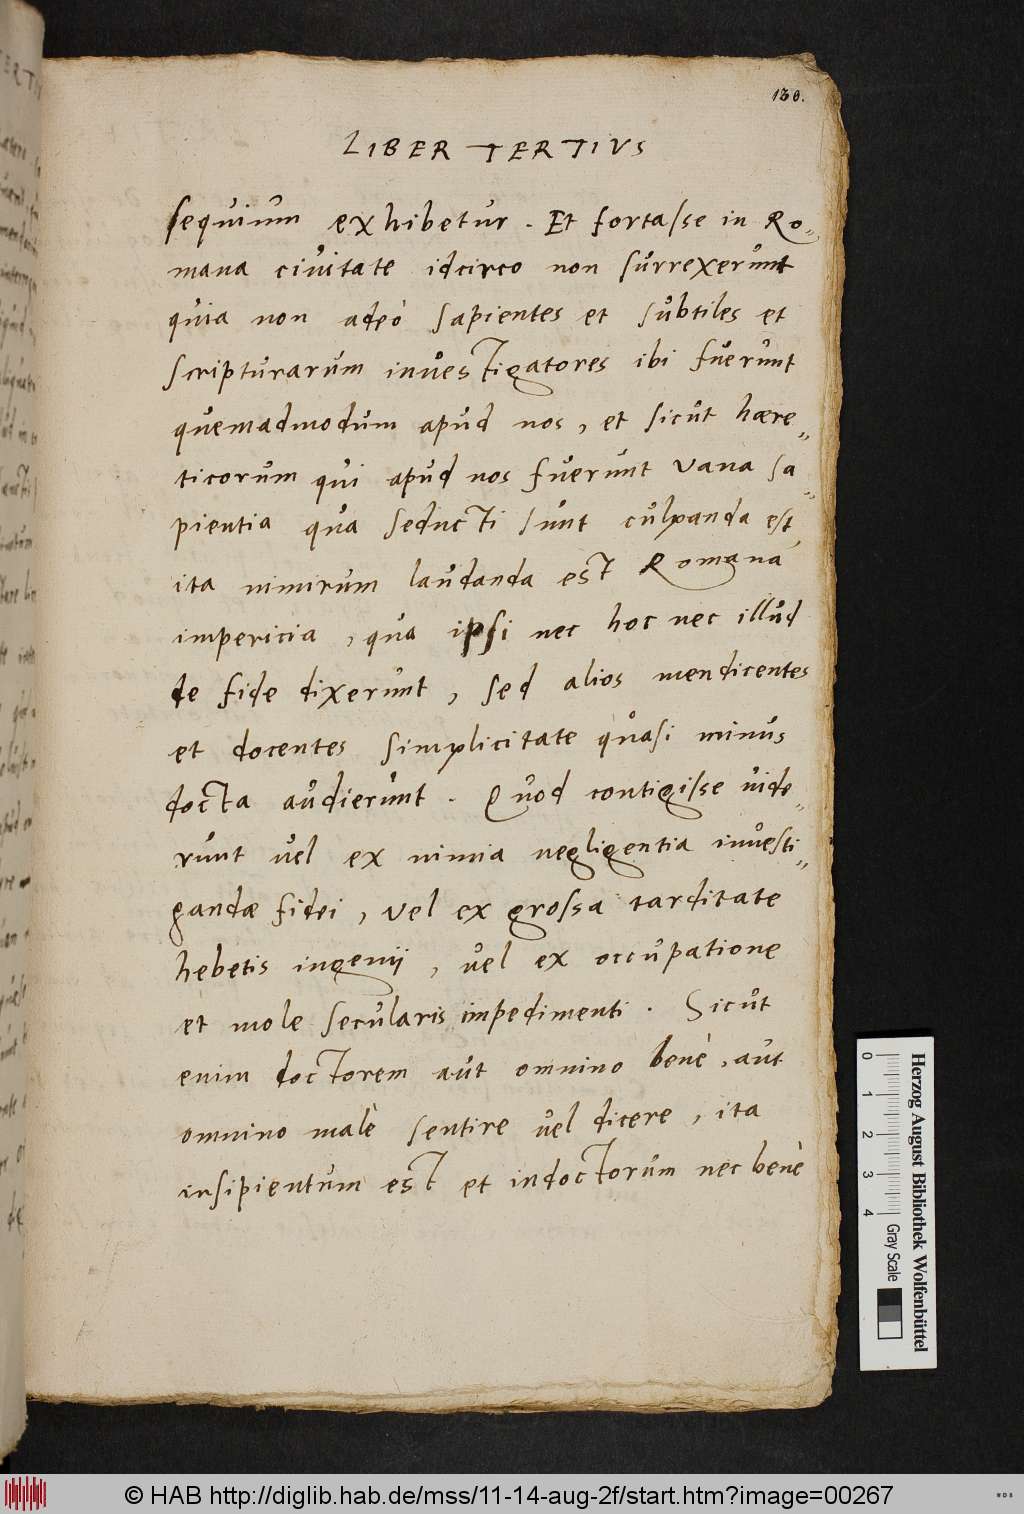 130.
LIBER TERTIVS
sequium exhibetur. Et fortasse in Ro„
mana ciuitate idcirco non surrexerunt
quia non adeò sapientes et subtiles et
scripturarum inuestigatores ibi fuerunt
quemadmodum apud nos, et sicut hære„
ticorum qui apud nos fuerunt vana sa„
pientia qua seducti sunt culpanda est
ita nimirum laudanda est Romana
impericia, qua ipsi nec hoc nec illud
de fide dixerunt, sed alios mendicentes
et docentes simplicitate quasi minus
docta audierunt. Quod contigisse uide„
runt uel ex nimia negligentia inuesti„
gandæ fidei, vel ex grossa tarditate
hebetis ingenij, uel ex occupatione
et mole secularis impedimenti. Sicut
enim doctorem aut omnino benè, aut
omnino malè sentire vel dicere, ita
insipientum est et indoctorum nec benè
0 1 2 3 4
Gray Scale
Herzog August Bibliothek Wolfenbüttel
© HAB http://diglib.hab.de/mss/11-14-aug-2f/start.htm?image=00267